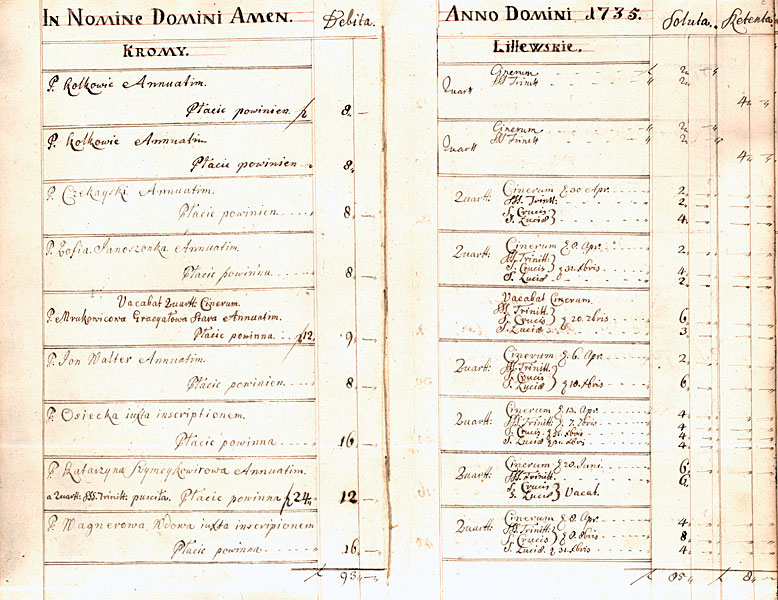 In Nomine Domini Amen. Debita.
Kromy.
P. Kolkowic Annuatim.
Płacie powinien 8.
P. Kolkowic Annuatim
Płacie powinien 8.
P. Czekayski Annuatim.
Płacie powinien 8.
P. Zofia Janoszonka Annuatim.
Płacie powinna 8.
Vacabat Quartt: Cinerum.
P. Mrukowicowa Gracyałowa Stara Annuatim.
Płacie powinna 12. 9.
P. Jon Walter Annuatim.
Płacie powinien 8.
P. Osiecka iuxta inscriptionem.
Płacie powinna 16.
P. Katarzyna Szymeykwirowa Annuatim.
a Quartt: SS. Trinitt: pusciła. Płacie powinna 24 12
P. Wagnerowa, Wdowa iuxta inscriptionem
Płacie powinna 16.
93
Anno Domini 1735. Soluta. Retenta.
Littewskie.
Quartt Cinerum 2
SS Trinitt 2
4
Quartt Cinerum 2
SS Trinitt 2
4
Quartt: Cinerum 30 Apr. 2
SS. Trinitt: 2
S. Crucis
S. Luciæ 4
Quartt: Cinerum 8. Apr. 2
SS. Trinitt:
S. Crucis 31. Xbris 4
S. Luciæ 2
Vacabat Cinerum.
SS. Trinitt:
S. Crucis 20. 7bris 6
S. Luciæ 3
Quartt: Cinerum 6. Apr. 2
SS. Trinitt:
S. Crucis
S. Luciæ 18. Xbris 6
Quartt: Cinerum 13. Apr. 4
SS. Trinitt: 7. 7bris 4
S. Crucis 31. Xbris 4
S. Luciæ 31. Xbris 4
Quartt: Cinerum 20. Juni. 6
SS. Trinitt: 6
S. Crucis
S. Luciæ Vacat.
Quartt: Cinerum 8. Apr. 4
SS. Trinitt:
S. Crucis 8
S. Luciæ 31. Xbris 4
85 8